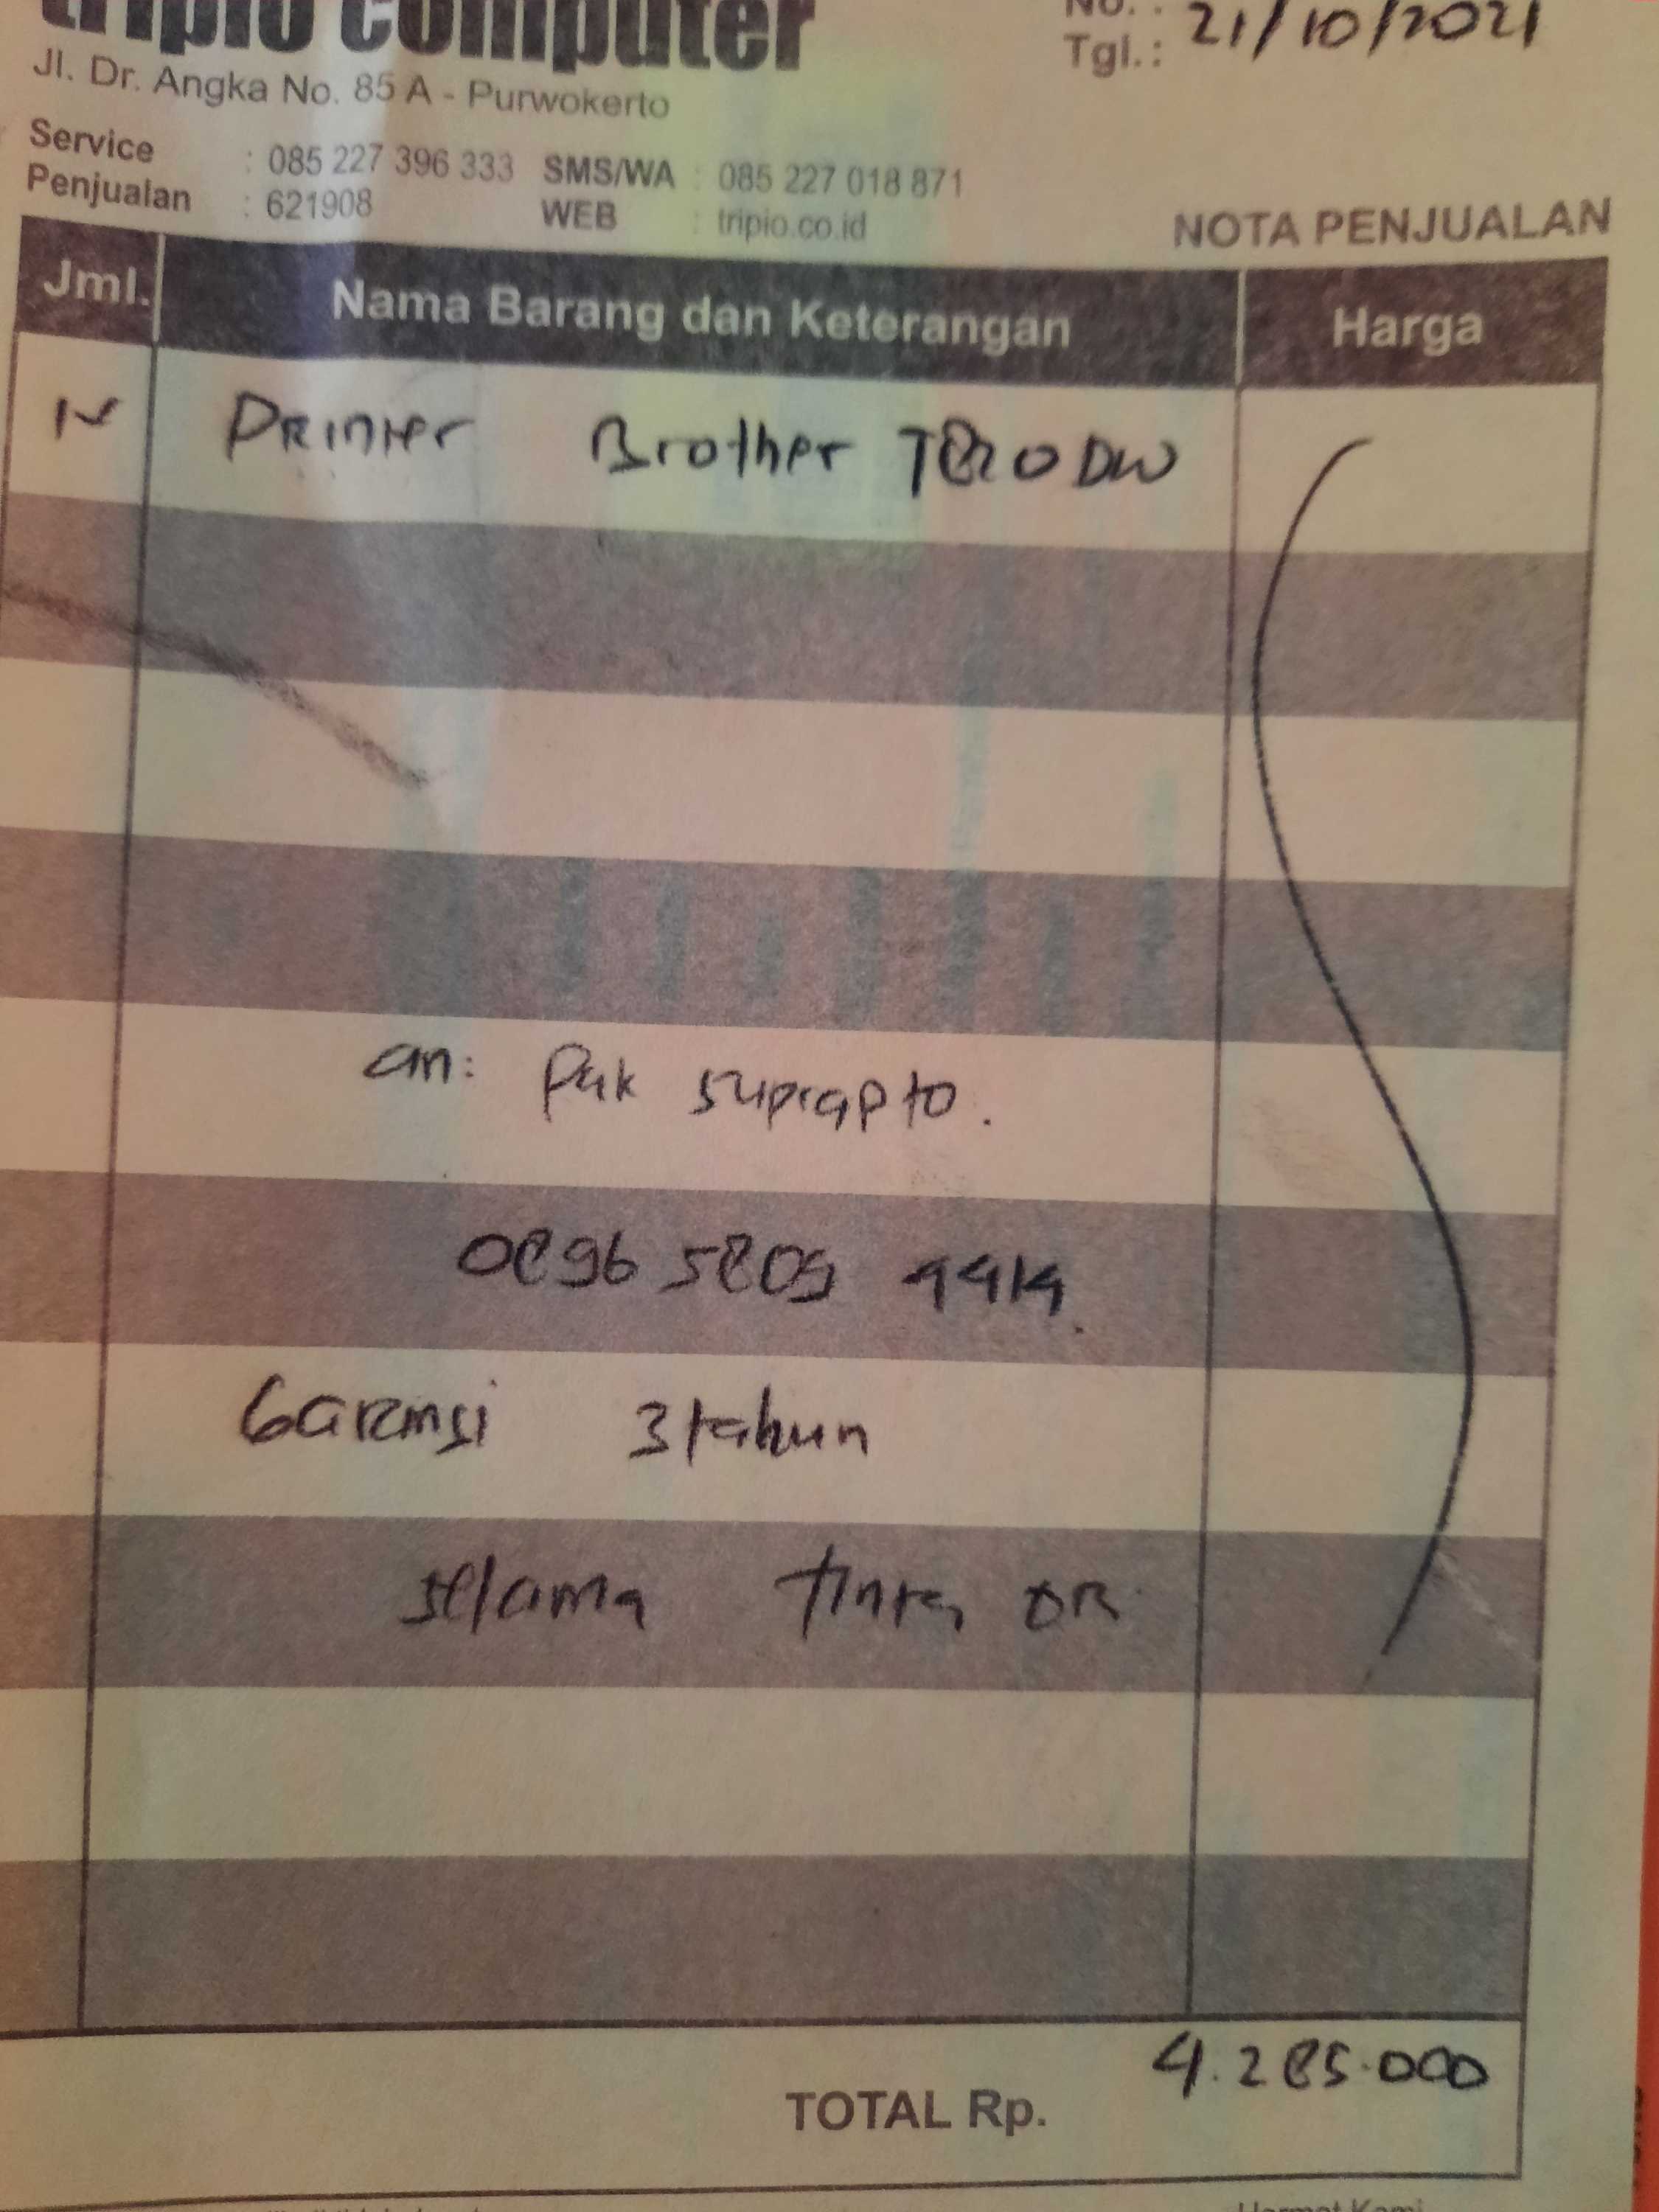 tripio computer
No. :
Tgl. : 21/10/2021
Jl. Dr. Angka No. 85 A - Purwokerto
Service : 085 227 396 333 SMS/WA : 085 227 018 871
Penjualan : 621908 WEB : tripio.co.id
NOTA PENJUALAN
Jml. Nama Barang dan Keterangan Harga
Printer Brother T820DW
an: Pak Suprapto.
0896 5809 4414
Garansi 3 tahun
selama tinta OR
4.285.000
TOTAL Rp.
Hormat Kami